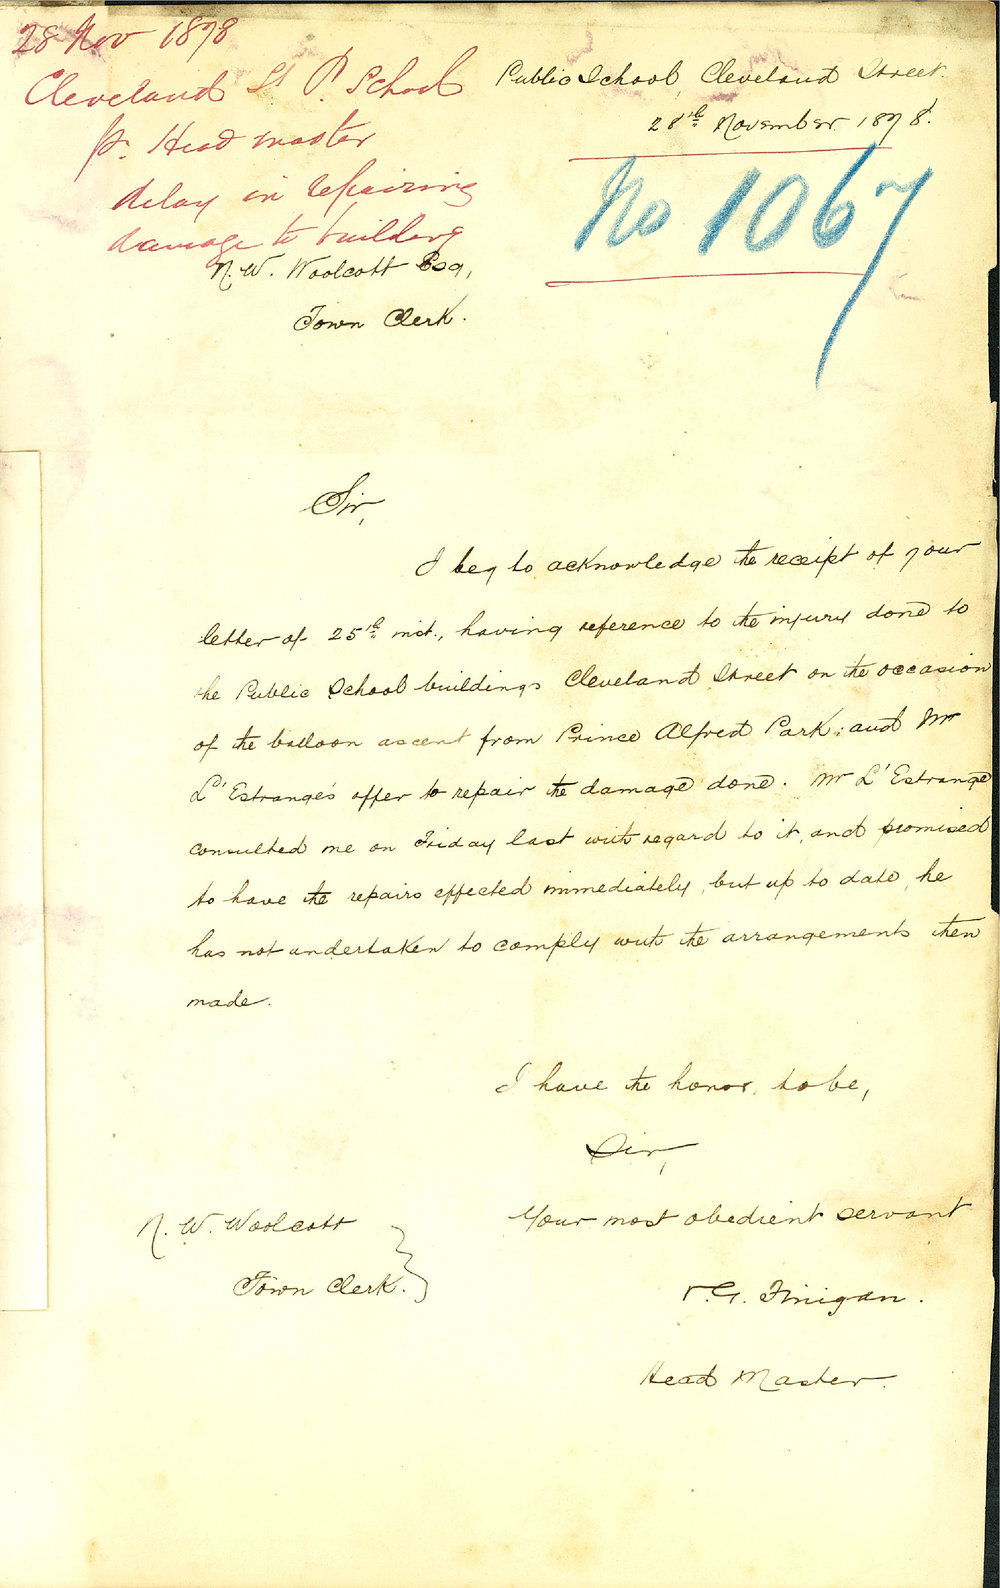 28 Nov 1878
Cleveland St P. School
pr. Head master
delay in repairing
damage to building
Public School, Cleveland Street.
28th November 1878.
No 1067
N. W. Woolcott Esq,
Town Clerk.
Sir,
I beg to acknowledge the receipt of your
letter of 25th inst., having reference to the injury done to
the Public School buildings Cleveland Street on the occasion
of the balloon ascent from Prince Alfred Park; and Mr
L'Estrange's offer to repair the damage done. Mr L'Estrange
consulted me on Friday last with regard to it, and promised
to have the repairs effected immediately, but up to date, he
has not undertaken to comply with the arrangements then
made.
I have the honor, to be,
Sir,
Your most obedient servant
G. Finigan.
Head Master.
N. W. Woolcott
Town Clerk.